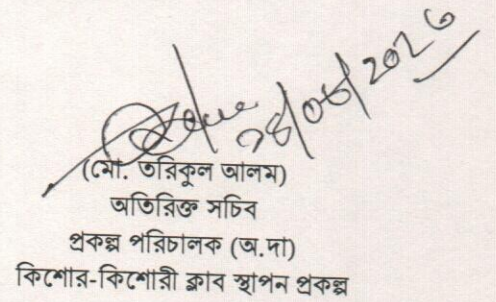 (মো. তরিকুল আলম)
অতিরিক্ত সচিব
প্রকল্প পরিচালক (অ.দা)
কিশোর-কিশোরী ক্লাব স্থাপন প্রকল্প